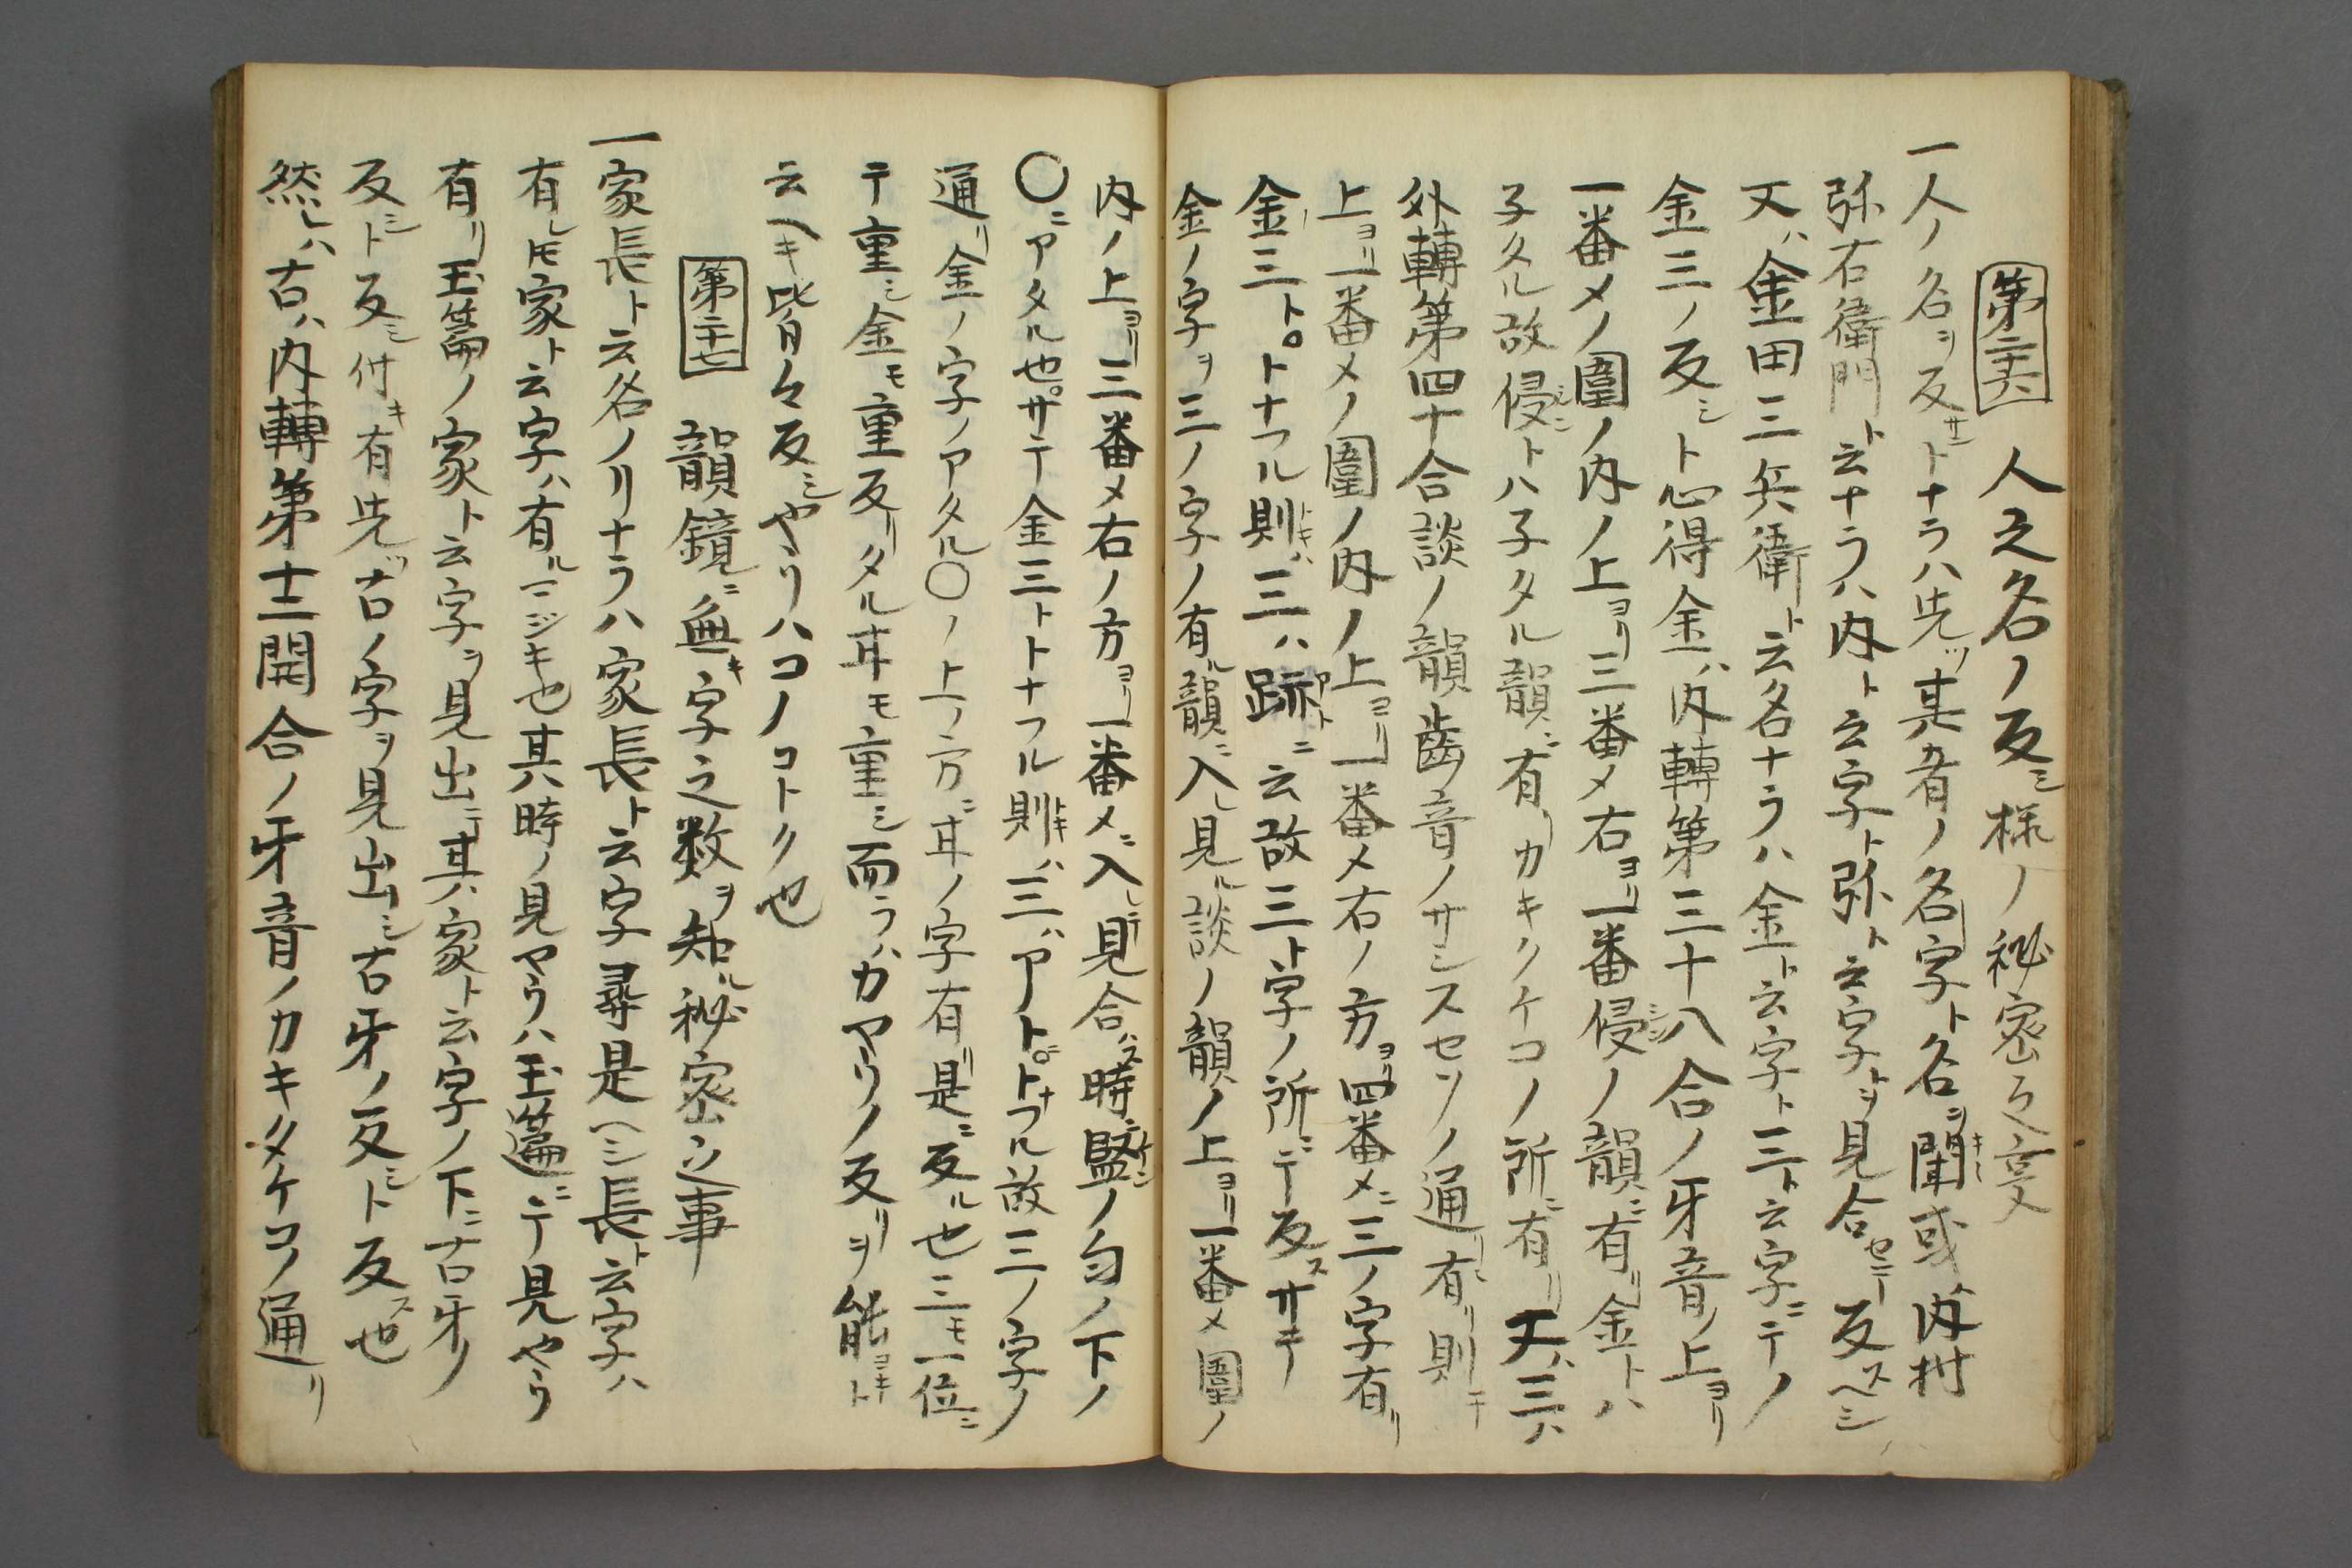 第二十六 人之名ノ反シ様ノ秘密之叓
一人ノ名ヲ反サントナラハ先ツ其者ノ名字ト名ヲ聞キ或ハ内村
弥右衛門ト云ナラハ内ト云字ト弥ト云字トヲ見合セテ反スヘシ
又ハ金田三兵衛ト云名ナラハ金ト云字ト三ト云字ニテノ
金三ノ反シト心得金ハ内轉第三十八合ノ牙音ノ上ヨリ
一番メノ圍ノ内ノ上ヨリ三番メ右ヨリ一番侵シンノ韻ニ有リ金トハ
子タル故侵ンニトハ子タル韻ニ有リカキクケコノ所ニ有リ又ハ三ハ
外轉第四十合談ノ韻齒音ノサシスセソノ通リニ有リ則チ
上ヨリ一番メノ圍ノ内ノ上ヨリ一番メ右ノ方ヨリ四番メニ三ノ字有リ
金ノ三ト。トナフル則トキハ三ハ跡アトニ云故三ト字ノ所ニテ反スサテ
金ノ字ヲ三ノ字ノ有ル韻ニ入レ見ル談ノ韻ノ上ヨリ一番メ圍ノ
内ノ上ヨリ三番メ右ノ方ヨリ一番メニ入レテ見合ハス時ニ監ケンノ匀ノ下ノ
〇ニアタル也。サテ金三トトナフル則トキハ三ハアト。トナフル故三ノ字ノ
通リ金ノ字ノアタル〇ノ上ノ方ニ
テ重シ金モ重反リタル
云ヘキ皆々反シやうハコノコトク也
第二十七 韻鏡ニ無キ字之数ヲ知ル秘密之事
一家長ト云名ノリナラハ家長ト云字尋是ヘシ長ト云字ハ
有レ𪜈家ト云字ハ有ルマジキ也其時ノ見ヤウハ玉篇ニテ見やう
有リ玉篇ノ家ト云字ヲ見出シテ其ハ家ト云字ノ下ニ古牙ノ
反シト反シ付キ有先ツ古ノ字ヲ見出シ古牙ノ反シト反ス也
然レハ古ハ内轉第十二開合ノ牙音ノカキクケコノ通リ